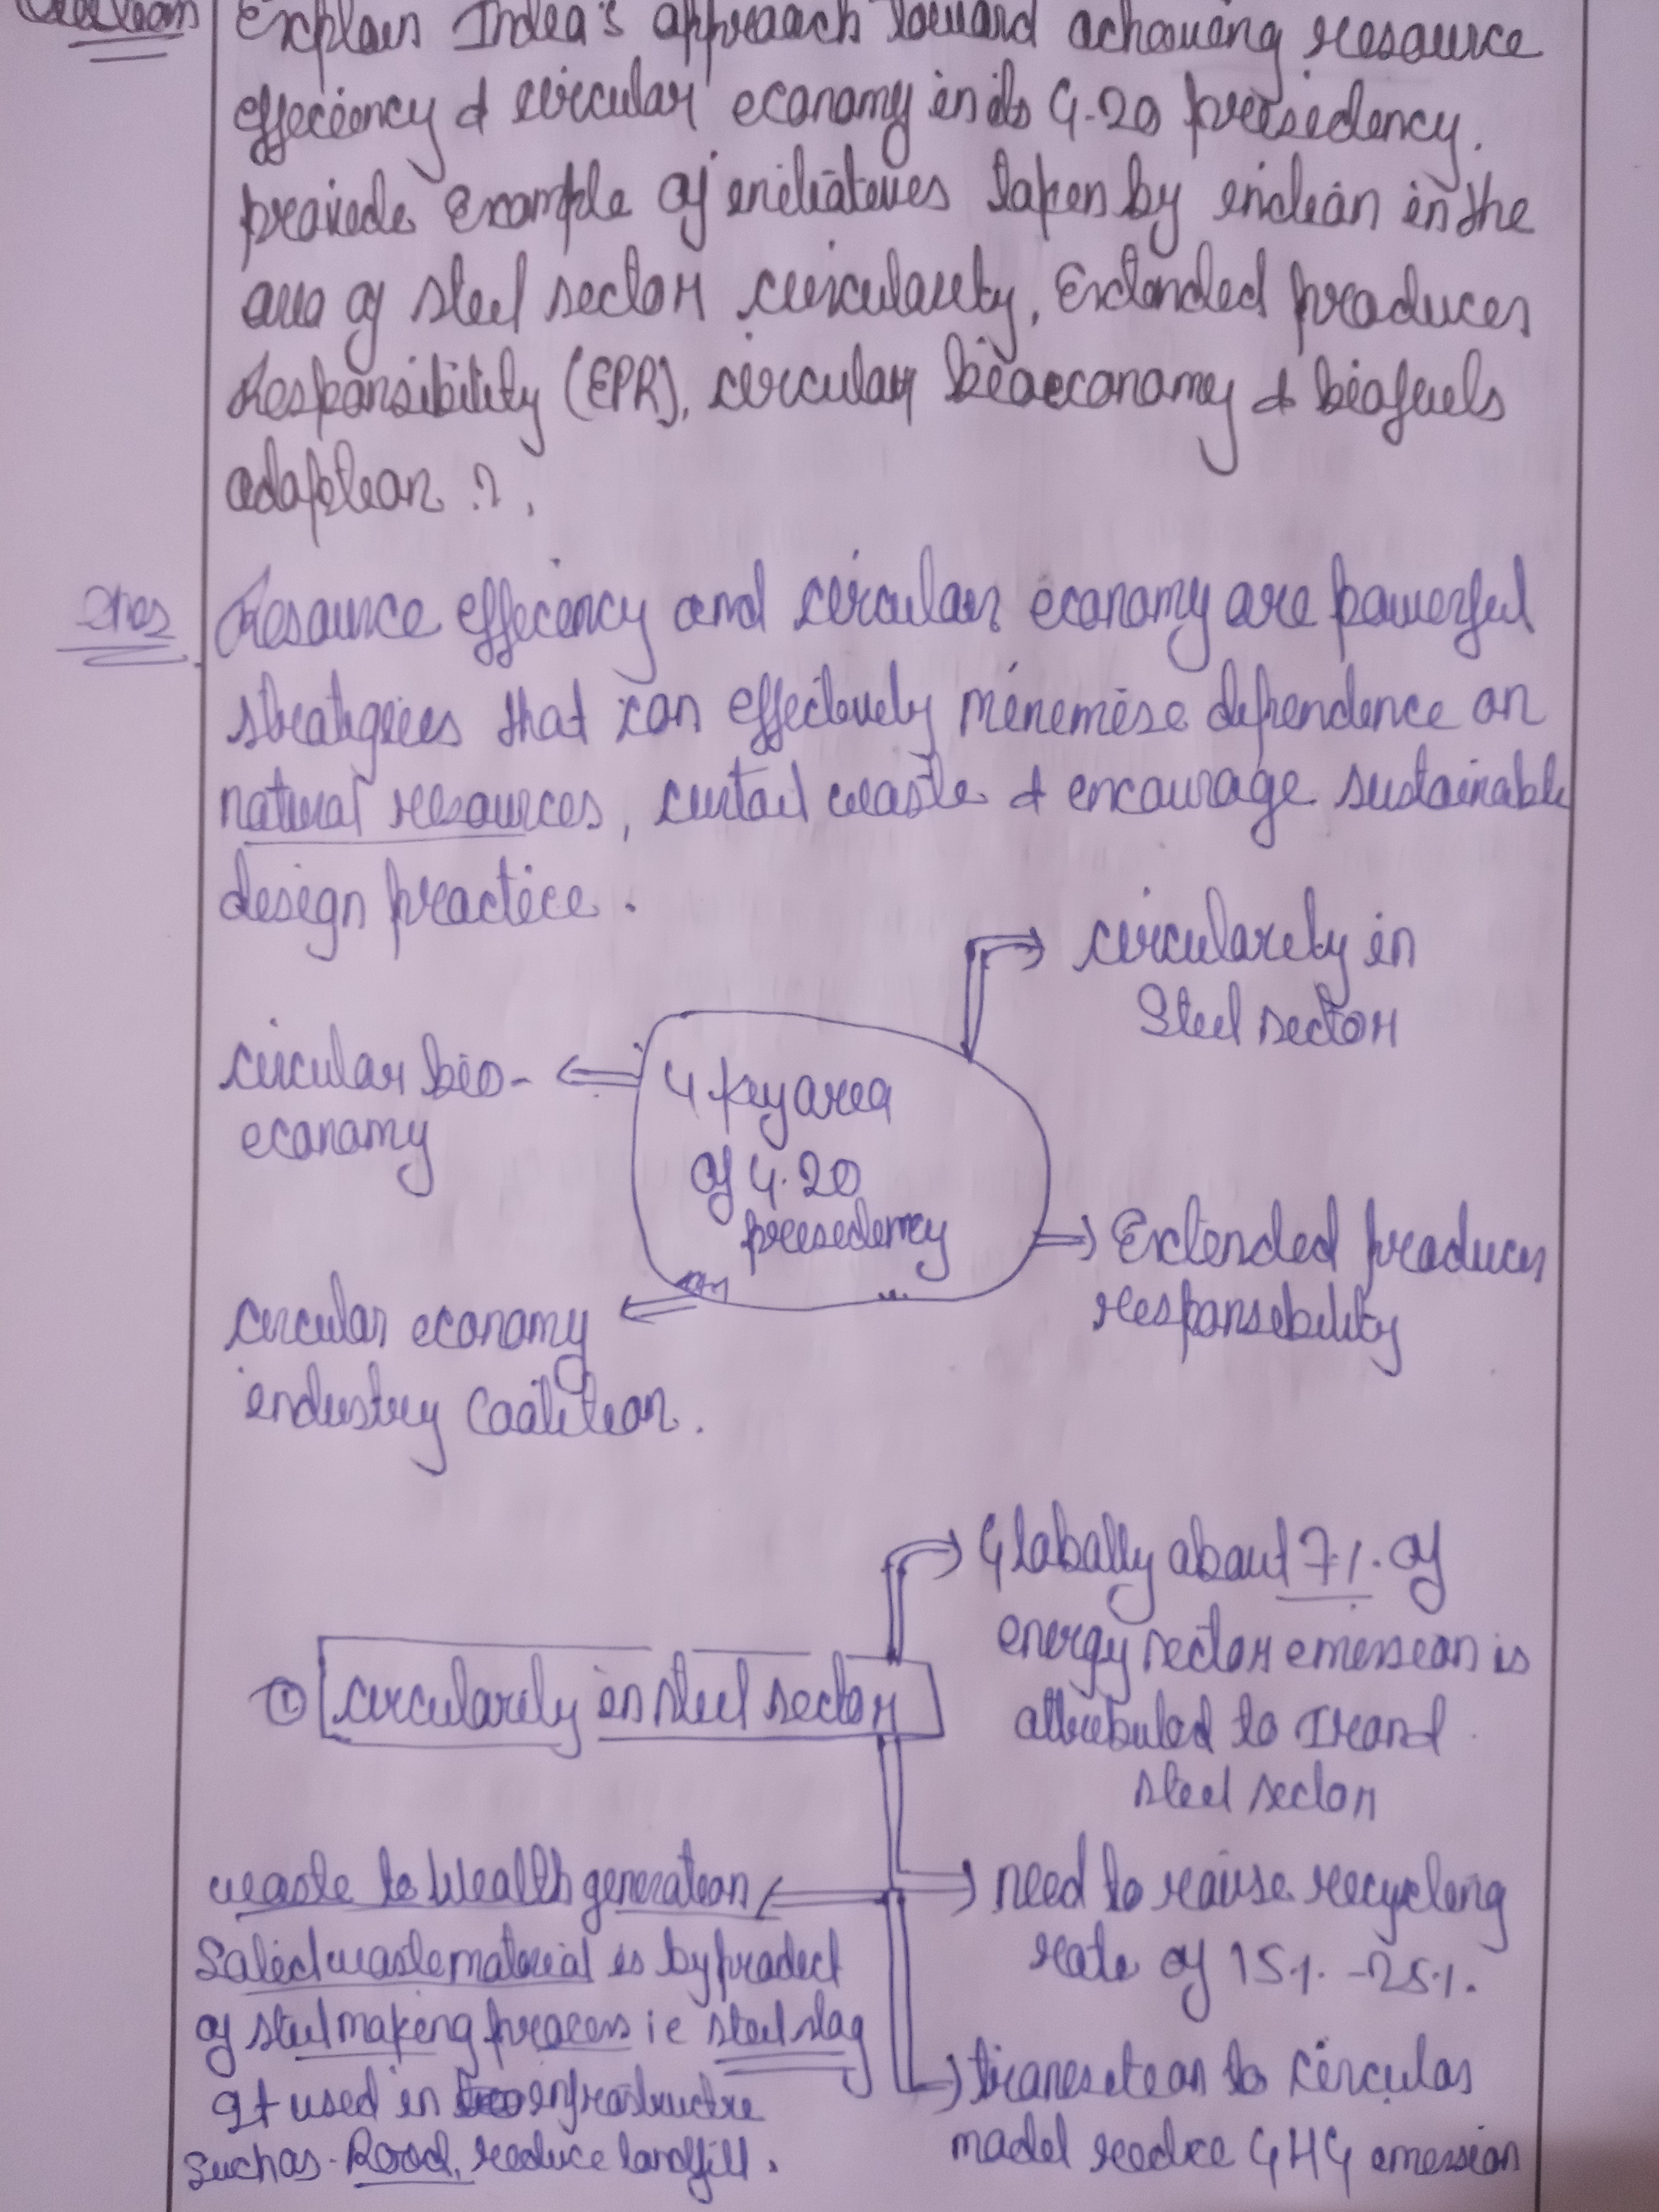 Question
Explain India's approach toward achieving resource
effeciency & circular economy in its G-20 presidency.
provide Example of initiatives taken by indian in the
area of steel sector circularity, Extended producer
Responsibility (EPR), circular bioeconomy & biofuels
adaption ?.
Ans
Resource effecency and circular economy are powerful
strategies that can effectively minimise dependence on
natural resources, curtail waste & encourage sustainable
design practice.
circularity in
Steel sector
circular bio-
economy
4 key area
of G.20
presedency
Extended producer
responsibility
circular economy
industry Coalition.
Globally about 7%. of
energy sector emession is
attributed to Iron and
steel sector
① circularity in steel sector
waste to Wealth generation
Solid waste material is byproduct
of steel making process ie steel slag
It used in infrastructre
such as - Road, reduce landfill.
need to raise recycling
rate of 15%. - 25%.
transition to circular
model reduce GHG emession